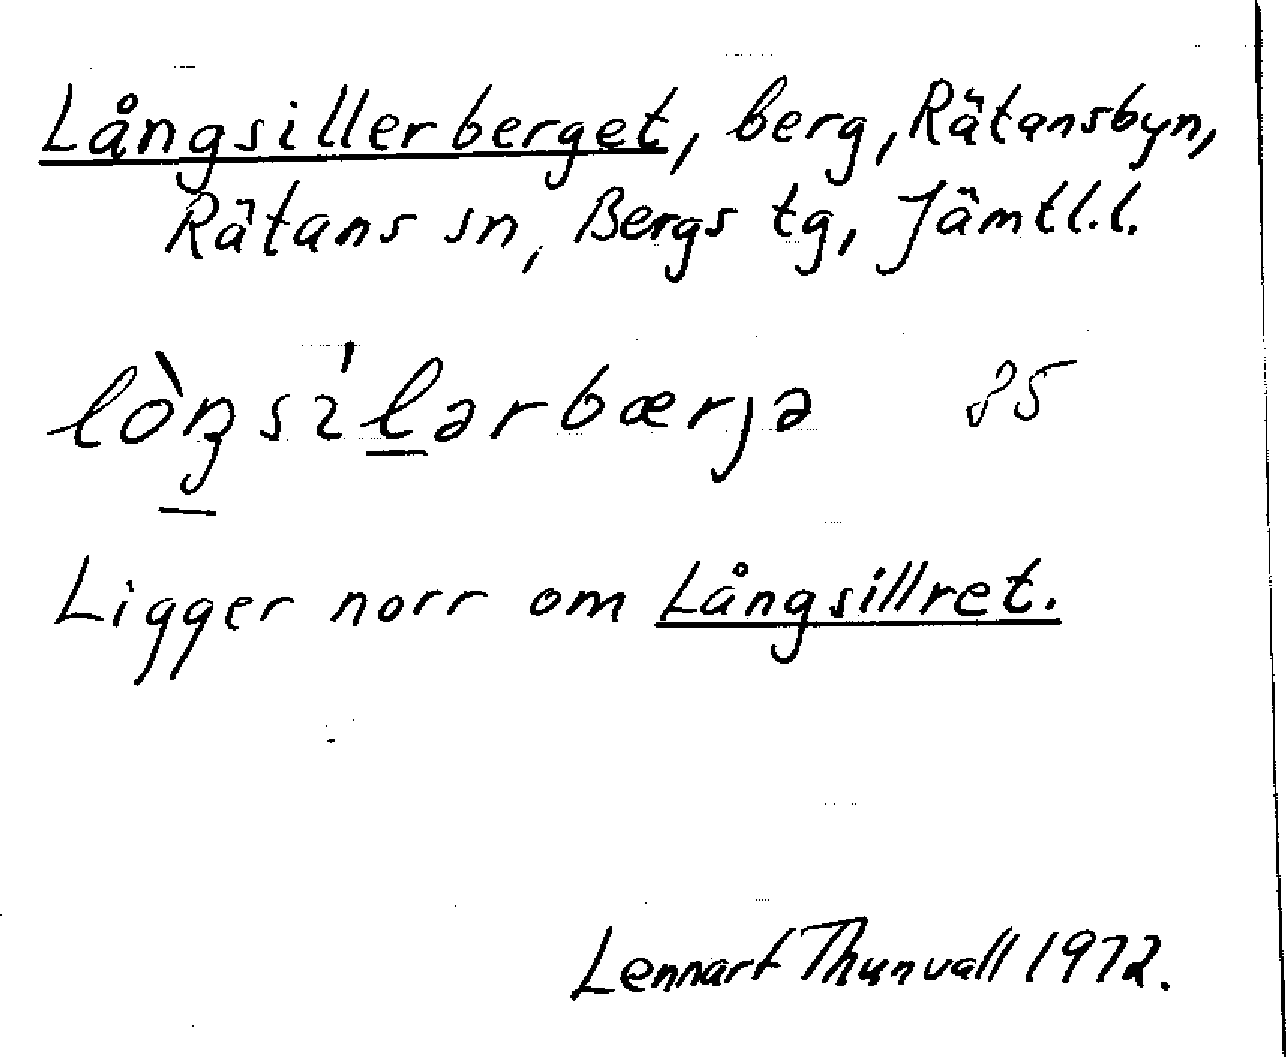 Långsillerberget, berg, Rätansbyn,
Rätans sn, Bergs tg, Jämtl.l.
lòŋsíl̲ərbærjə 85
Ligger norr om Långsillret.
Lennart Thunvall 1972.